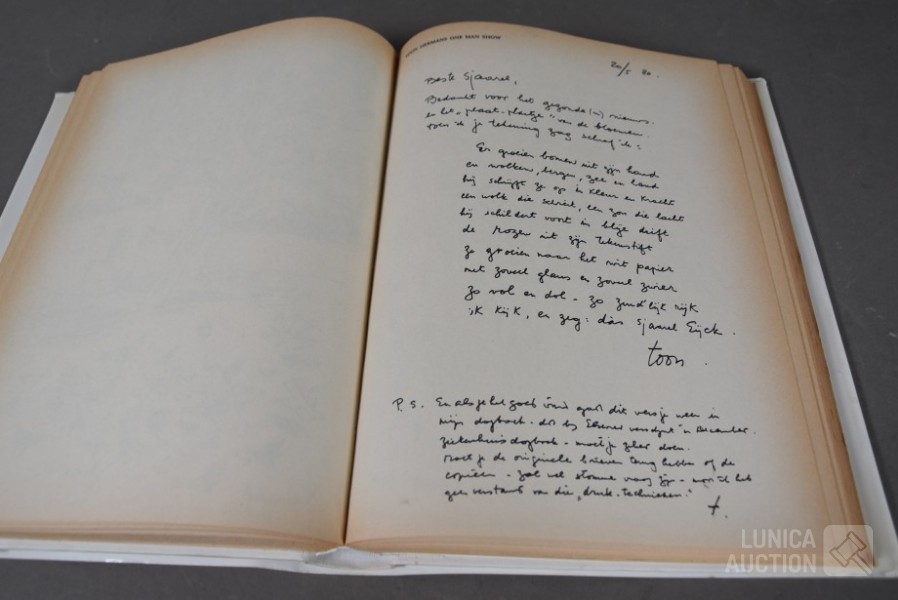 TOON HERMANS ONE MAN SHOW
20/5 80.
Beste Sjaarel,
Bedankt voor het gezonde nieuws.
en het "plaat-plaatje" van de bloemen.
toen ik je tekening zag schreef ik:
Er groeien bomen uit zijn hand
en wolken, bergen, zee en land
hij schept ze op in kleur en kracht
een wolk die schreit, een zon die lacht
hij schildert voort in blije drift
de rozen uit zijn tekenstift
ze groeien naar het wit papier
met zoveel glans en zoveel zwier
zo vol en dol - zo zindlijk rijk
ik kijk, en zeg: dàs Sjaarel Eijck.
toon.
P.S. En als je het goed vind gaat dit versje weer in
mijn dagboek. dat bij Elsevier verschijnt in December.
ziekenhuisdagboek - moet je zeker doen.
moet je de originele brieven terug hebben of de
copieën - zal wel stomme vraag zijn - maar ik heb
geen verstand van die "druk-technieken."
t.
LUNICA
AUCTION